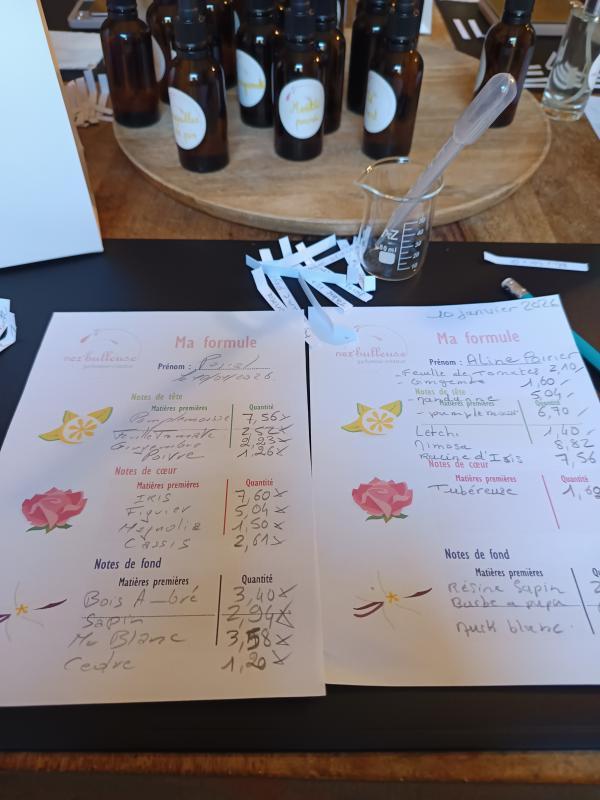 Menthe
AZ
nez'bulleuse
parfumeur-créateur
Ma formule
Prénom :
Notes de tête
Matières premières Quantité
Pamplemousse 7,56 x
Feuille Tomate 2,52 x
Gingembre 2,23 x
Poivre 1,26 x
Notes de cœur
Matières premières Quantité
IRIS 7,60 x
Figuier 5,04 x
Magnolia 1,50 x
Cassis 2,61 x
Notes de fond
Matières premières Quantité
Bois Ambré 3,40 x
Sapin 2,94 x
Mu Blanc 3,58 x
Cedre 1,20 x
10 janvier 2026
Ma formule
Prénom : Aline Poirier
- Feuille de Tomates 2,10
- Gingembre 1,60
Notes de tête
Mandarine 5,04
Matières premières Quantité
- pamplemousse 6,70
Letchi 1,40
Mimosa 8,82
Racine d'Iris 7,56
Notes de cœur
Matières premières Quantité
Tubéreuse 1,60
Notes de fond
Matières premières Quantité
Résine Sapin 2
Musk blanc.